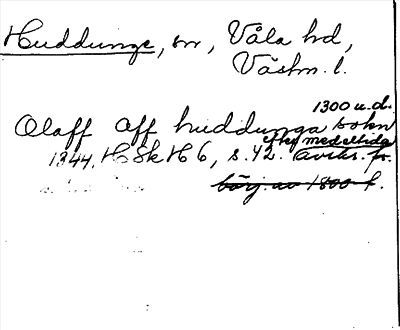 Huddunge, sn, Våla hd,
Västm. l.
1300 u.d.
Olaff aff huddunga sokn
1344. HSkH 6, s. 42. efter medeltida avskr. fr.
börj. av 1800-t.